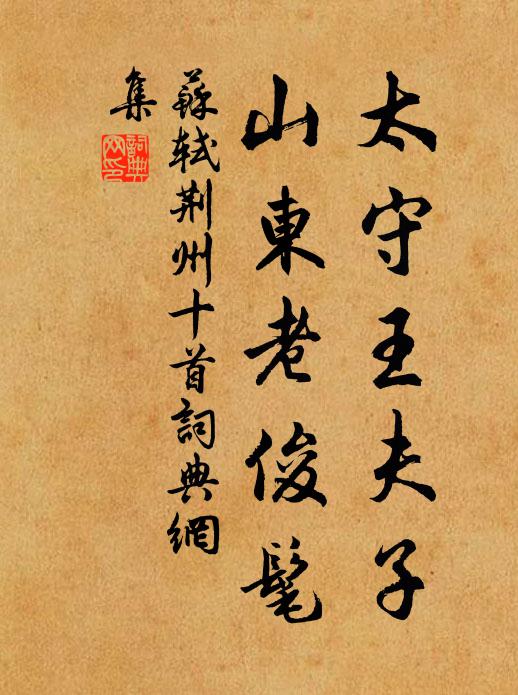 太守王夫子
山東老俊髦
蘇軾荆州十首詞典網
集
詞典
网印